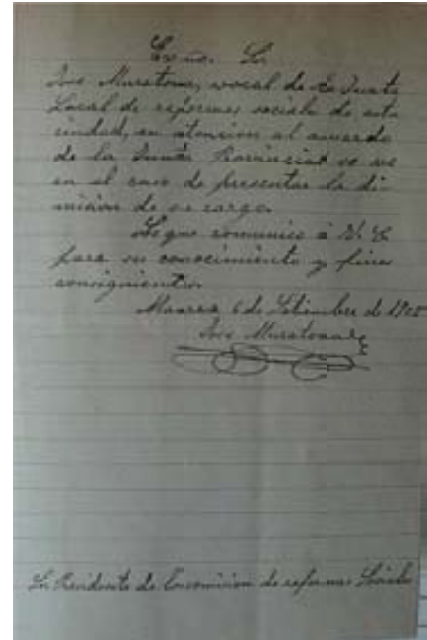 Exmo. Sr.
José Muratona, vocal de la Junta
Local de reformas sociales de esta
ciudad, en atencion al acuerdo
de la Junta Provincial se ve
en el caso de presentar la di-
mision de su cargo.
Lo que comunico á V. E.
para su conocimiento y fines
consiguientes.
Manresa 6 de Setiembre de 1905
José Muratona
Sr. Presidente de la comision de reformas Sociales